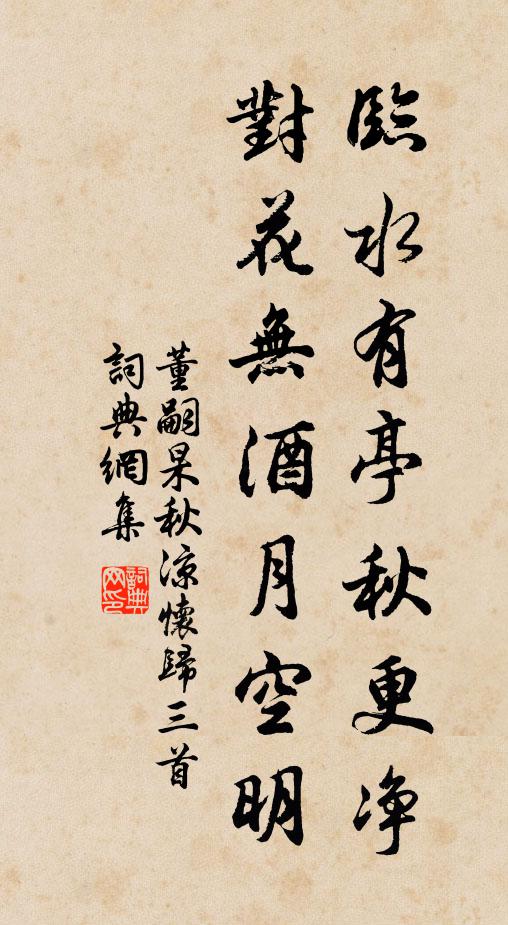 臨水有亭秋更净
對花無酒月空明
董嗣杲秋涼懷歸三首
詞典網集
詞典网印